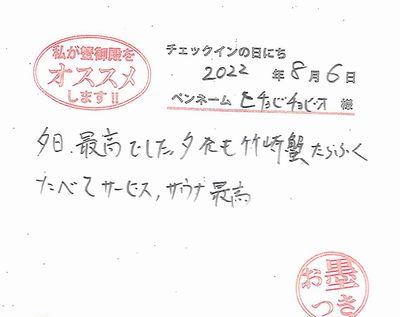 私が蟹御殿を
オススメ
します!!
チェックインの日にち
2022 年 8 月 6 日
ペンネーム モチョビチョビ・オ 様
夕日、最高でした。夕食も竹崎蟹たらふく
たべて サービス、サウナ 最高
お墨
つき